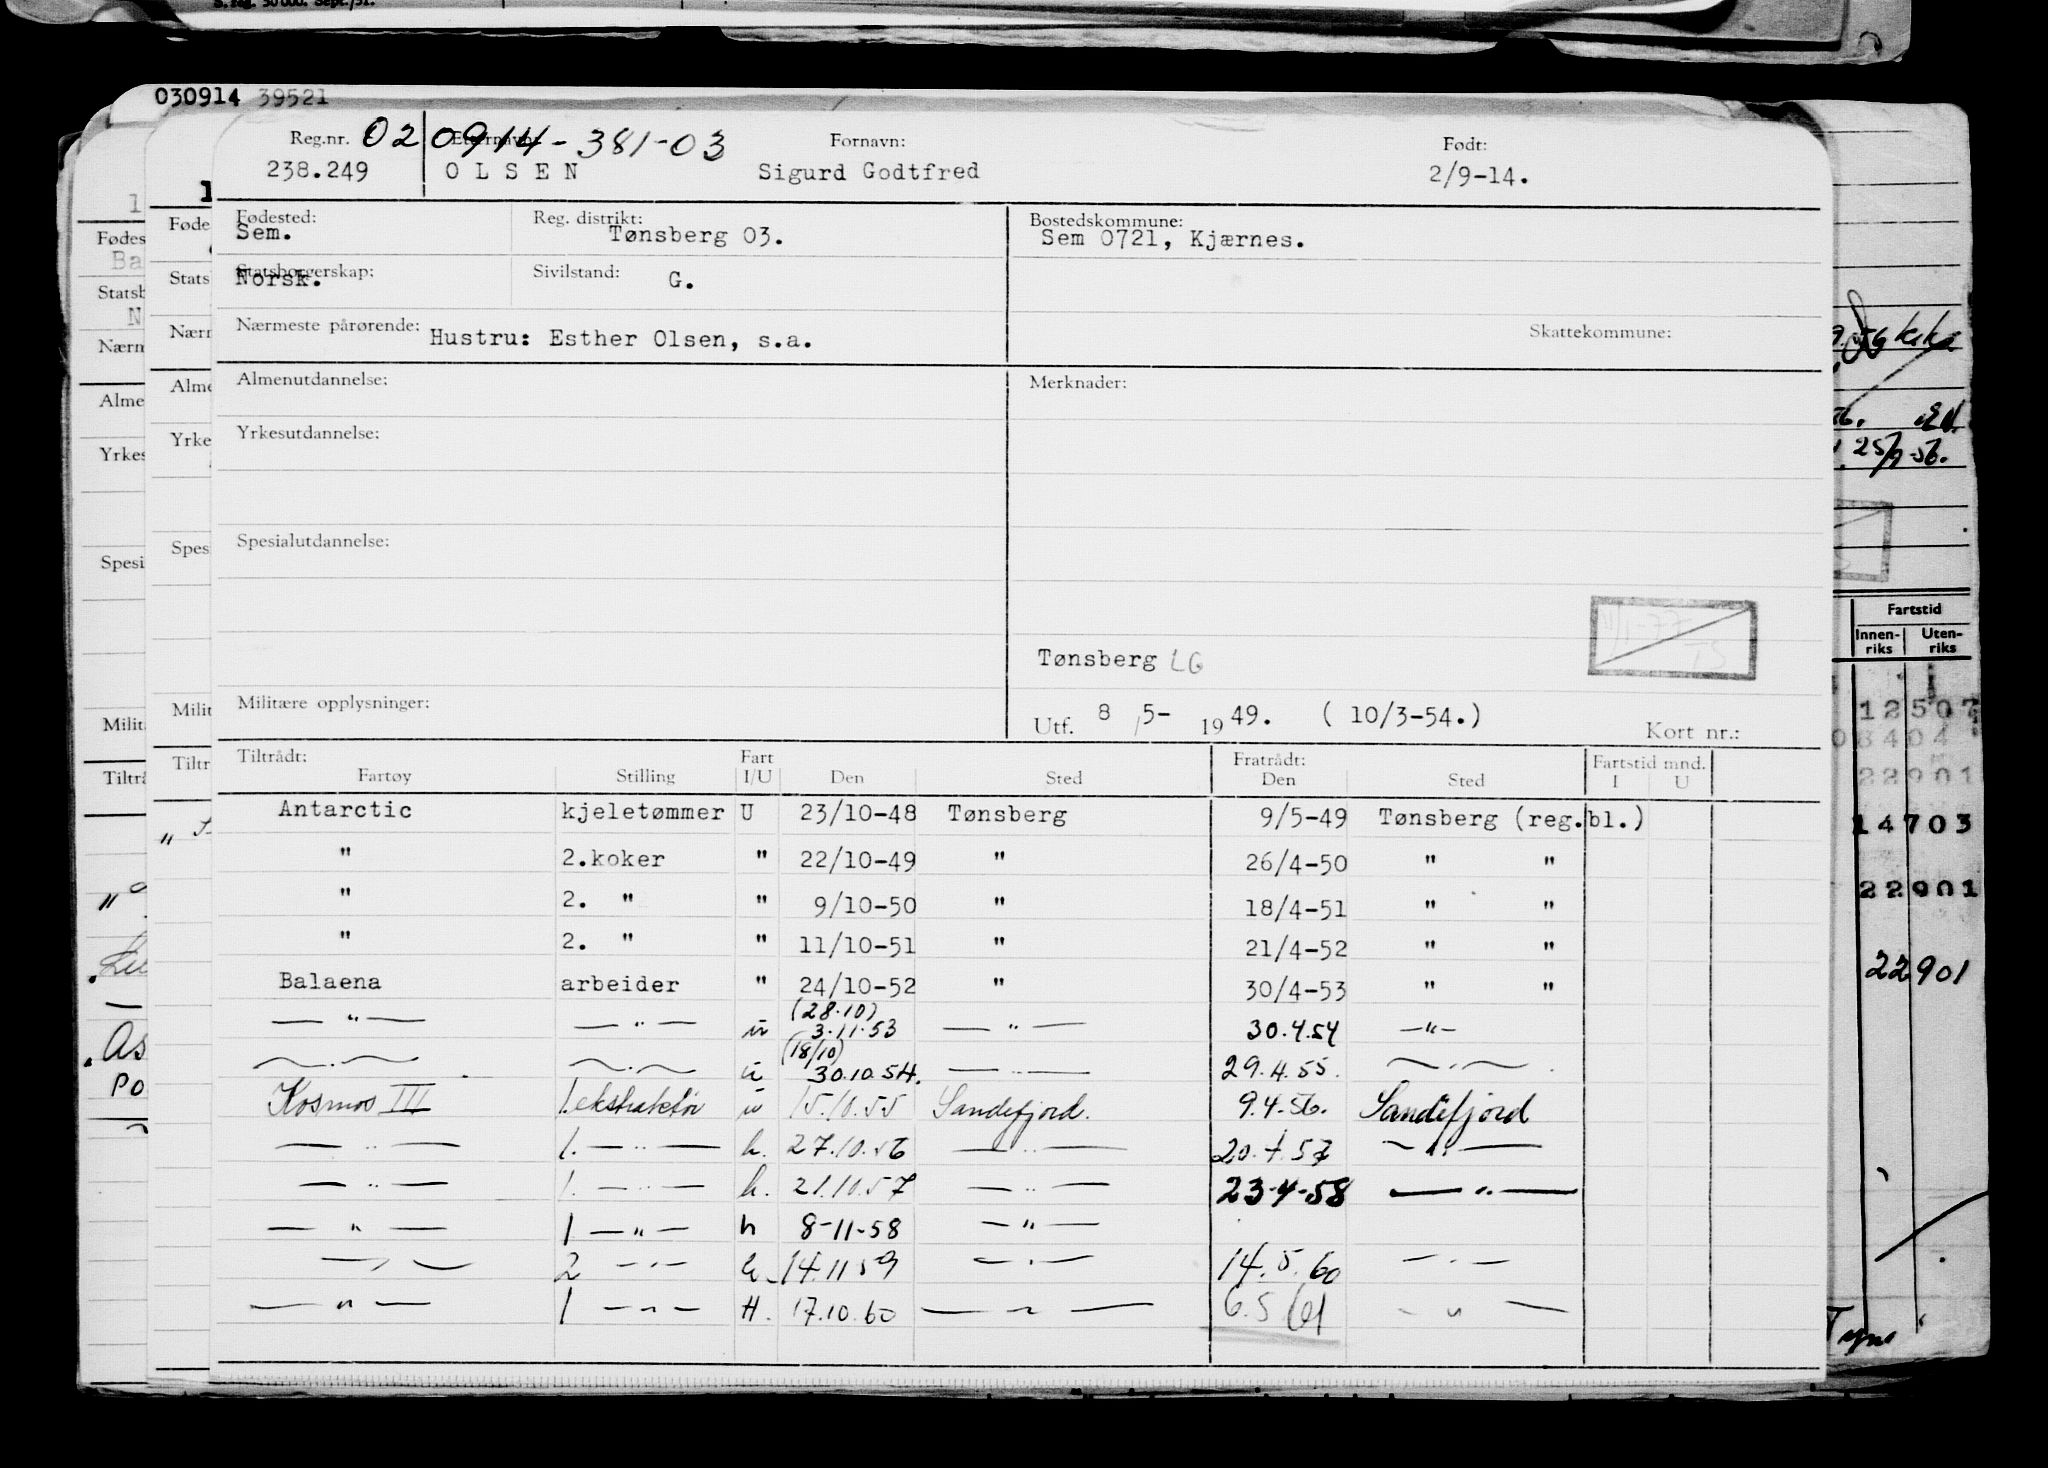 S. reg. 50 000. Sept./51.
030914 39521
Reg.nr. 020914-381-03 Etternavn: Fornavn: Født:
238.249 OLSEN Sigurd Godtfred 2/9-14.
Fødested: Reg. distrikt: Bostedskommune:
Sem. Tønsberg 03. Sem 0721, Kjærnes.
Statsborgerskap: Sivilstand:
Norsk. G.
Nærmeste pårørende: Hustru: Esther Olsen, s.a. Skattekommune:
Almenutdannelse: Merknader:
Yrkesutdannelse:
Spesialutdannelse:
Tønsberg LG
Militære opplysninger: Utf. 8/5- 1949. (10/3-54.) Kort nr.:
Tiltrådt: Fart Fratrådt: Fartstid mnd.
Fartøy Stilling I/U Den Sted Den Sted I U
Antarctic kjeletømmer U 23/10-48 Tønsberg 9/5-49 Tønsberg (reg.bl.)
" 2.koker " 22/10-49 " 26/4-50 " "
" 2. " " 9/10-50 " 18/4-51 " "
" 2. " " 11/10-51 " 21/4-52 " "
Balaena arbeider " 24/10-52 " 30/4-53 " "
(28.10)
— " — — " — u 3.11.53 — " — 30.4.54 — " —
(18/10)
— . — — . — u 30.10.54. — " — 29.4.55. — . —
Kosmos III 1.ekstraktør u 15.10.55 Sandefjord. 9.4.56. Sandefjord
— " — 1. — " — h. 27.10.56 — " — 20.4.57 — " —
— " — 1. — " — h. 21.10.57 — " — 23-4-58 — " —
— " — 1 — " — h 8-11-58 — " —
— " — 2 — " — h. 14.11 59 — " — 14.5.60 — " —
— " — 1 — " — H. 17.10.60 — " — 6.5 61 — " —
25/9-56.
Fartstid
Innen-riks Uten-riks
12507
08404
22901
14703
22901
22901